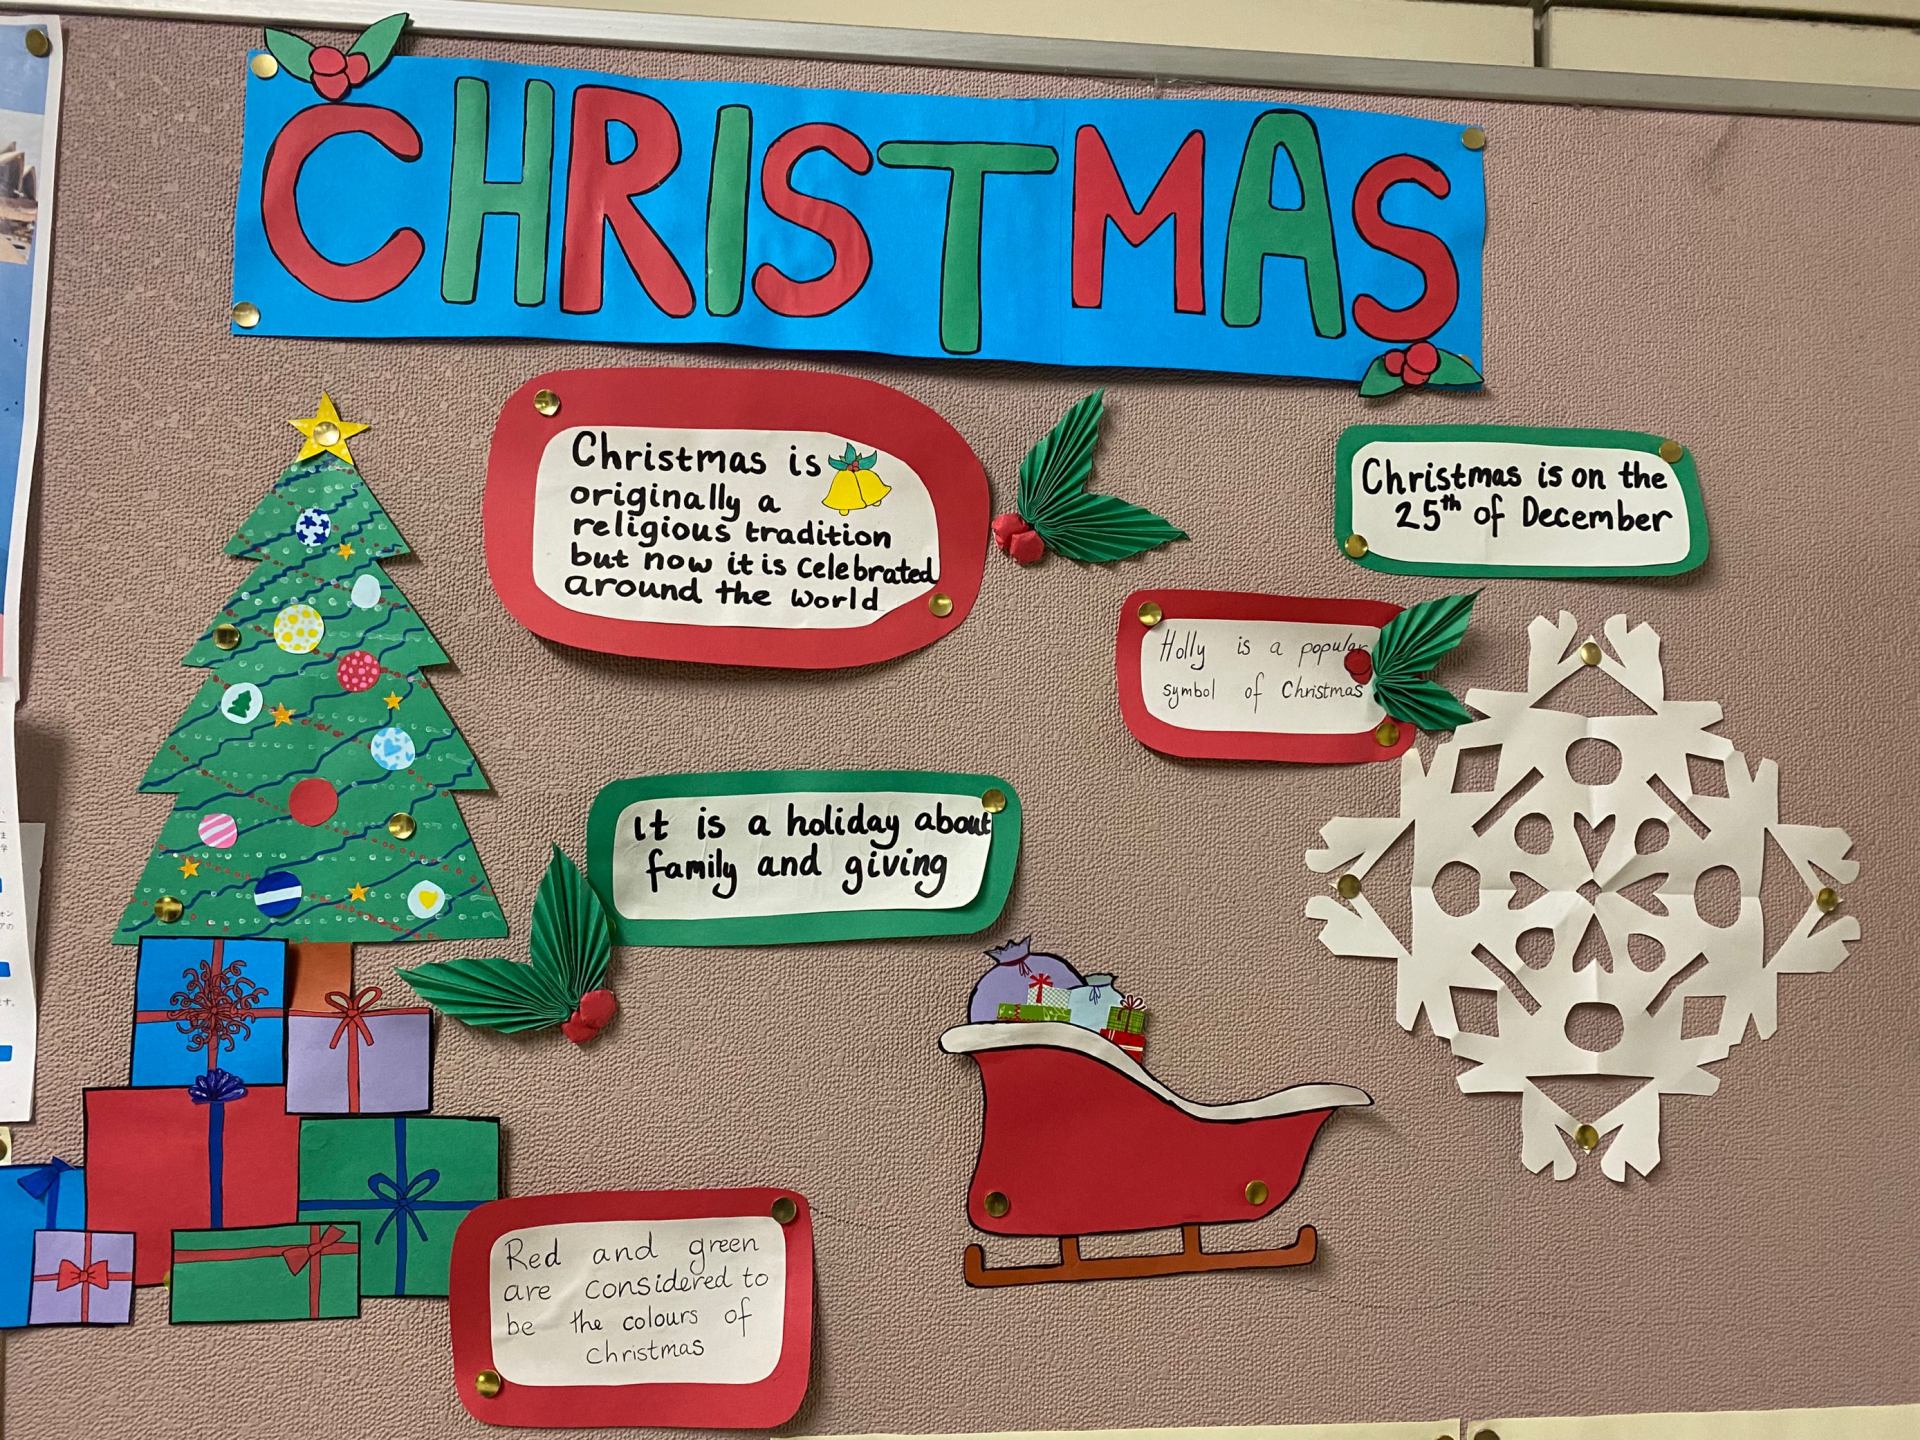 CHRISTMAS
Christmas is
originally a
religious tradition
but now it is celebrated
around the world
Christmas is on the
25th of December
Holly is a popular
symbol of Christmas
it is a holiday about
family and giving
Red and green
are considered to
be the colours of
Christmas